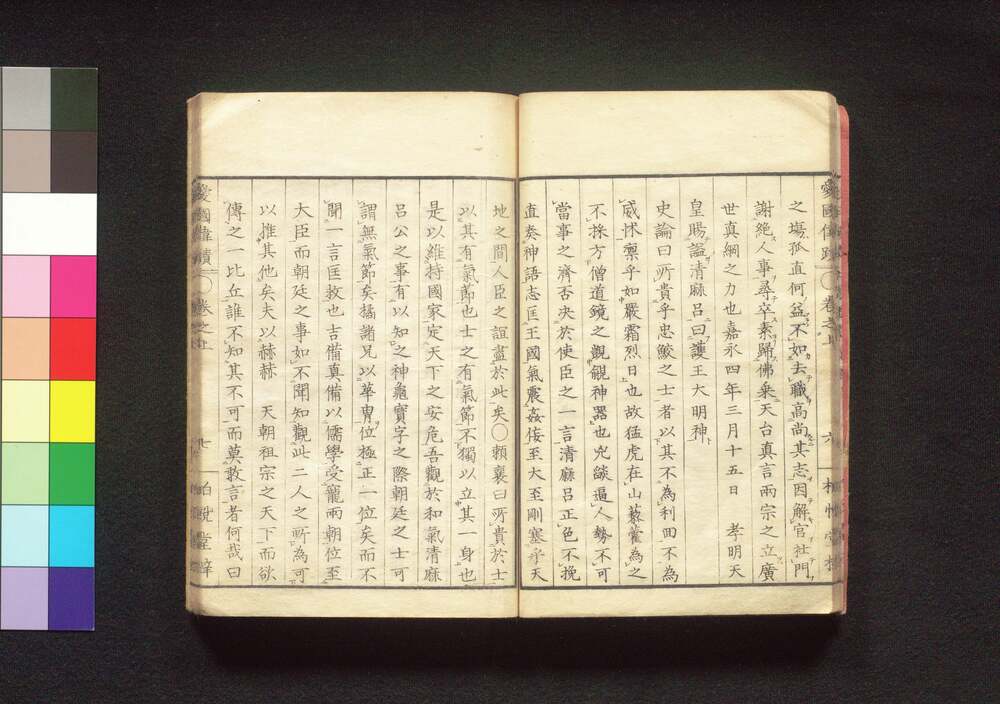 愛國偉蹟 〇卷之上 六
之塲孤直何益不如去職高尚其志因解官杜門
謝絕人事尋卒素歸佛乘天台真言兩宗之立廣
世真綱之力也嘉永四年三月十五日 孝明天
皇賜謚清麻呂曰護王大明神
史論曰所貴乎忠鯁之士者以其不為利回不為
威怵禀乎如嚴霜烈日也故猛虎在山藜藿為之
不採方僧道鏡之觀覦神器也兇燄逼人勢不可
當事之濟否決於使臣之一言清麻呂正色不挽
直奏神語志匡王國氣震姦侫至大至剛塞乎天
地之間人臣之誼盡於此矣〇賴襄曰所貴於士
以其有氣節也士之有氣節不獨以立其一身也
是以維持國家定天下之安危吾觀於和氣清麻
呂公之事有以知之神龜寶字之際朝廷之士可
謂無氣節矣橘諸兄以華胄位極正一位矣而不
聞一言匡救也吉備真備以儒學受寵兩朝位至
大臣而朝廷之事如不聞知觀此二人之所為可
以推其他矣夫以赫赫 天朝祖宗之天下而欲
傳之一比丘誰不知其不可而莫敢言者何哉曰
愛國偉蹟 〇卷之上 七